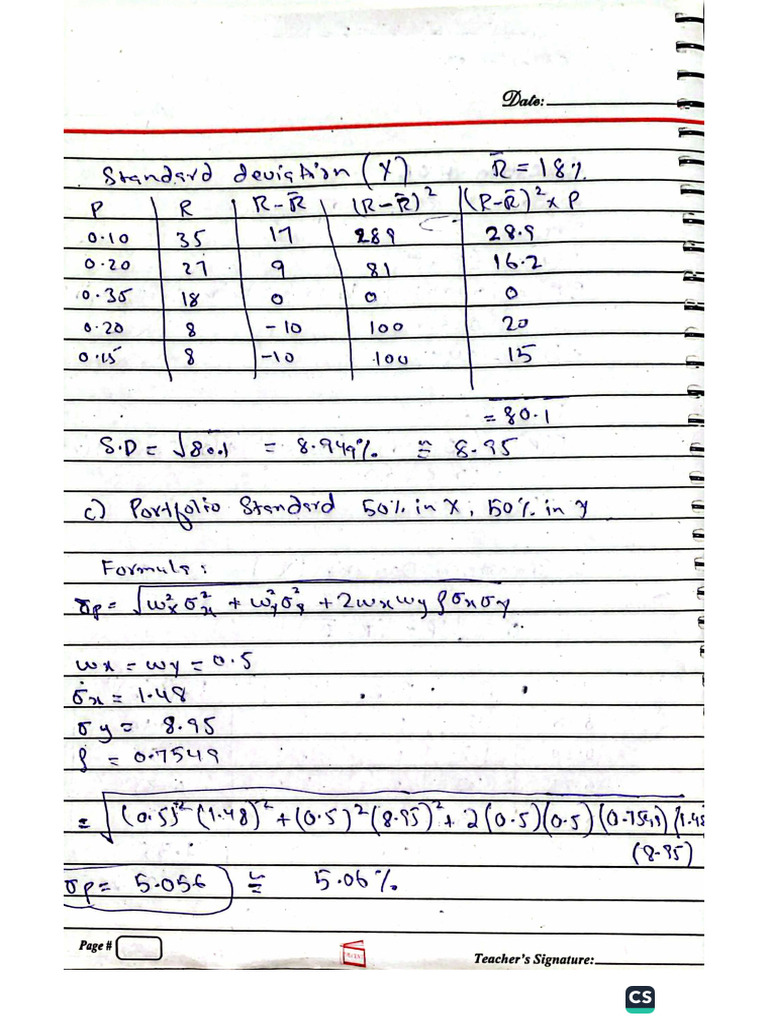 Date:
Standard deviation (Y) R̄ = 18%
P R R-R̄ (R-R̄)² (R-R̄)² x P
0.10 35 17 289 28.9
0.20 27 9 81 16.2
0.35 18 0 0 0
0.20 8 -10 100 20
0.15 8 -10 100 15
= 80.1
S.D = √80.1 = 8.949% ≅ 8.95
c) Portfolio Standard 50% in X, 50% in Y
Formula:
σp = √wx²σx² + wy²σy² + 2wxwy ρσxσy
wx = wy = 0.5
σx = 1.48
σy = 8.95
ρ = 0.7549
= √(0.5)²(1.48)² + (0.5)²(8.95)² + 2(0.5)(0.5)(0.7549)(1.48
(8.95)
σp = 5.056 ≅ 5.06%
Page #
Teacher's Signature:
CS